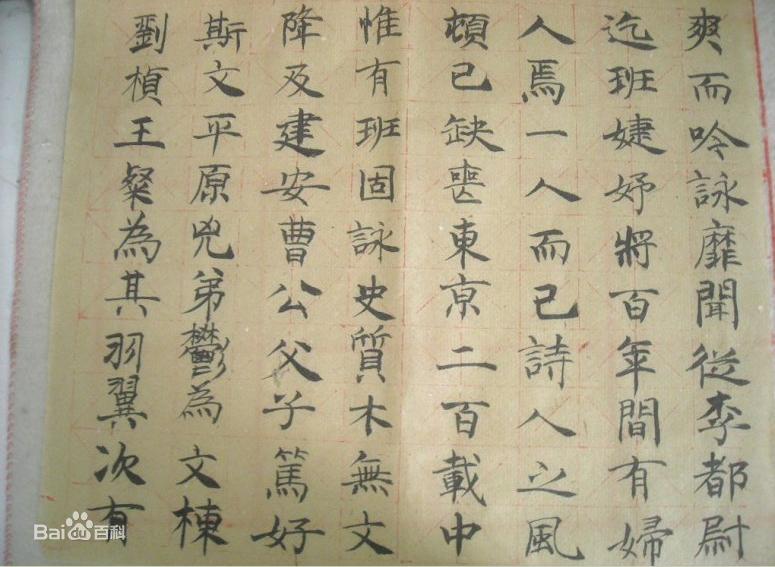 爽而吟詠靡聞從李都尉
迄班婕妤將百年間有婦
人焉一人而已詩人之風
頓已缺喪東京二百載中
惟有班固詠史質木無文
降及建安曹公父子篤好
斯文平原兄弟鬱為文棟
劉楨王粲為其羽翼次有
Bai du 百科